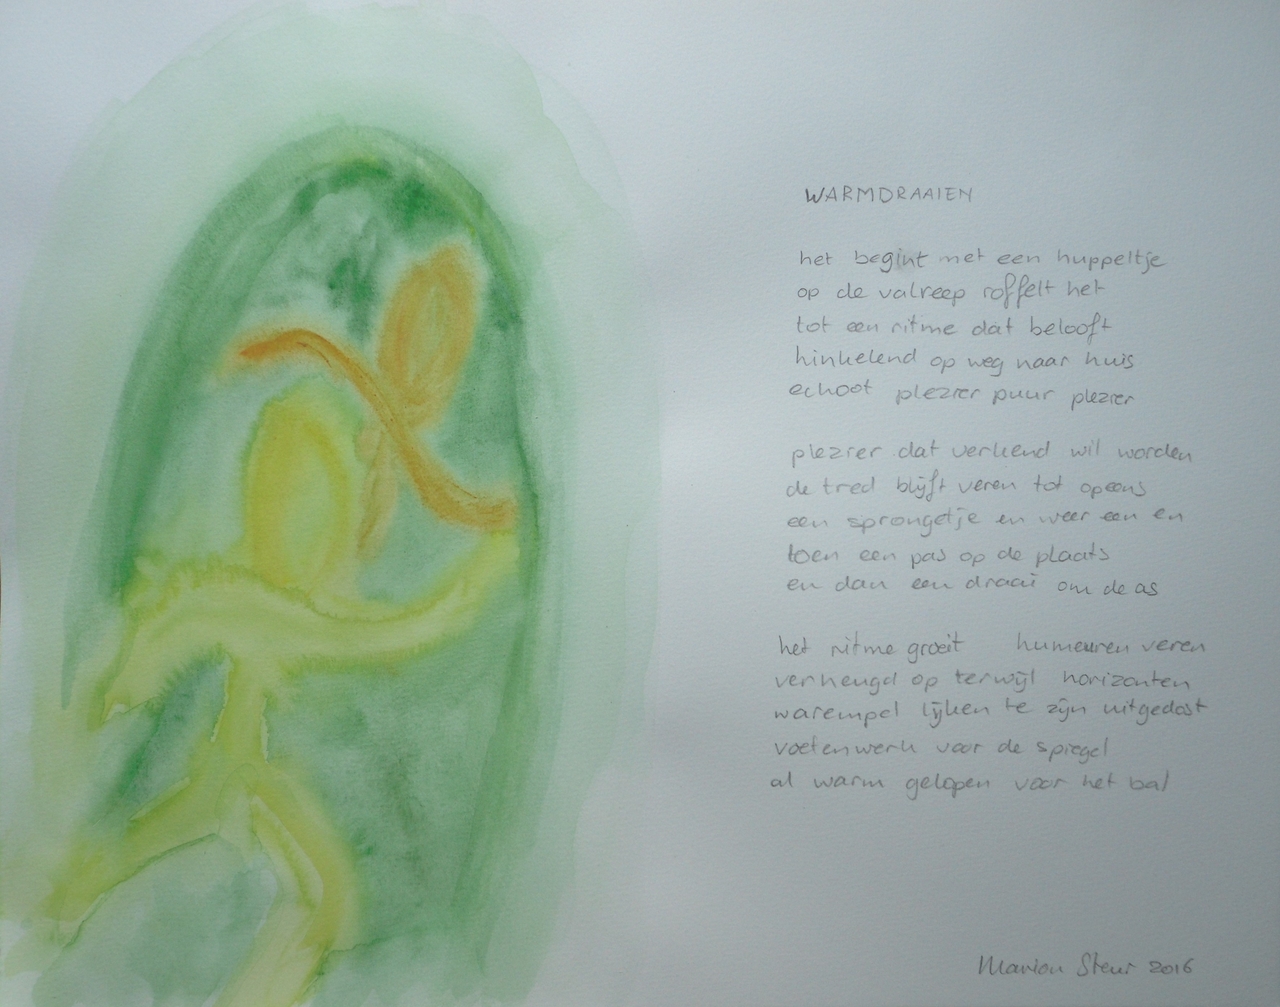 WARMDRAAIEN
het begint met een huppeltje
op de valreep roffelt het
tot een ritme dat belooft
hinkelend op weg naar huis
echoot plezier puur plezier
plezier dat verkend wil worden
de tred blijft veren tot opeens
een sprongetje en weer een en
toen een pas op de plaats
en dan een draai om de as
het ritme groeit humeuren veren
verheugd op terwijl horizonten
warempel lijken te zijn uitgedost
voetenwerk voor de spiegel
al warm gelopen voor het bal
Marion Steur 2016